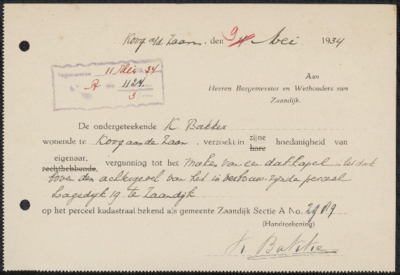 Koog a/d Zaan, den 9 Mei 1934
11 Mei 34
A 1124
3
Aan
Heeren Burgemeester en Wethouders van
Zaandijk.
De ondergeteekende K Bakker
wonende te Koog aan de Zaan, verzoekt in zijne hoedanigheid van
hare
eigenaar,
rechthebbende, vergunning tot het maken van een dakkapel in het dak
boven den achtergevel van het in verbouw zijnde perceel
Lagedijk 19 te Zaandijk
op het perceel kadastraal bekend als gemeente Zaandijk Sectie A No.
(Handteekening)
K Bakker